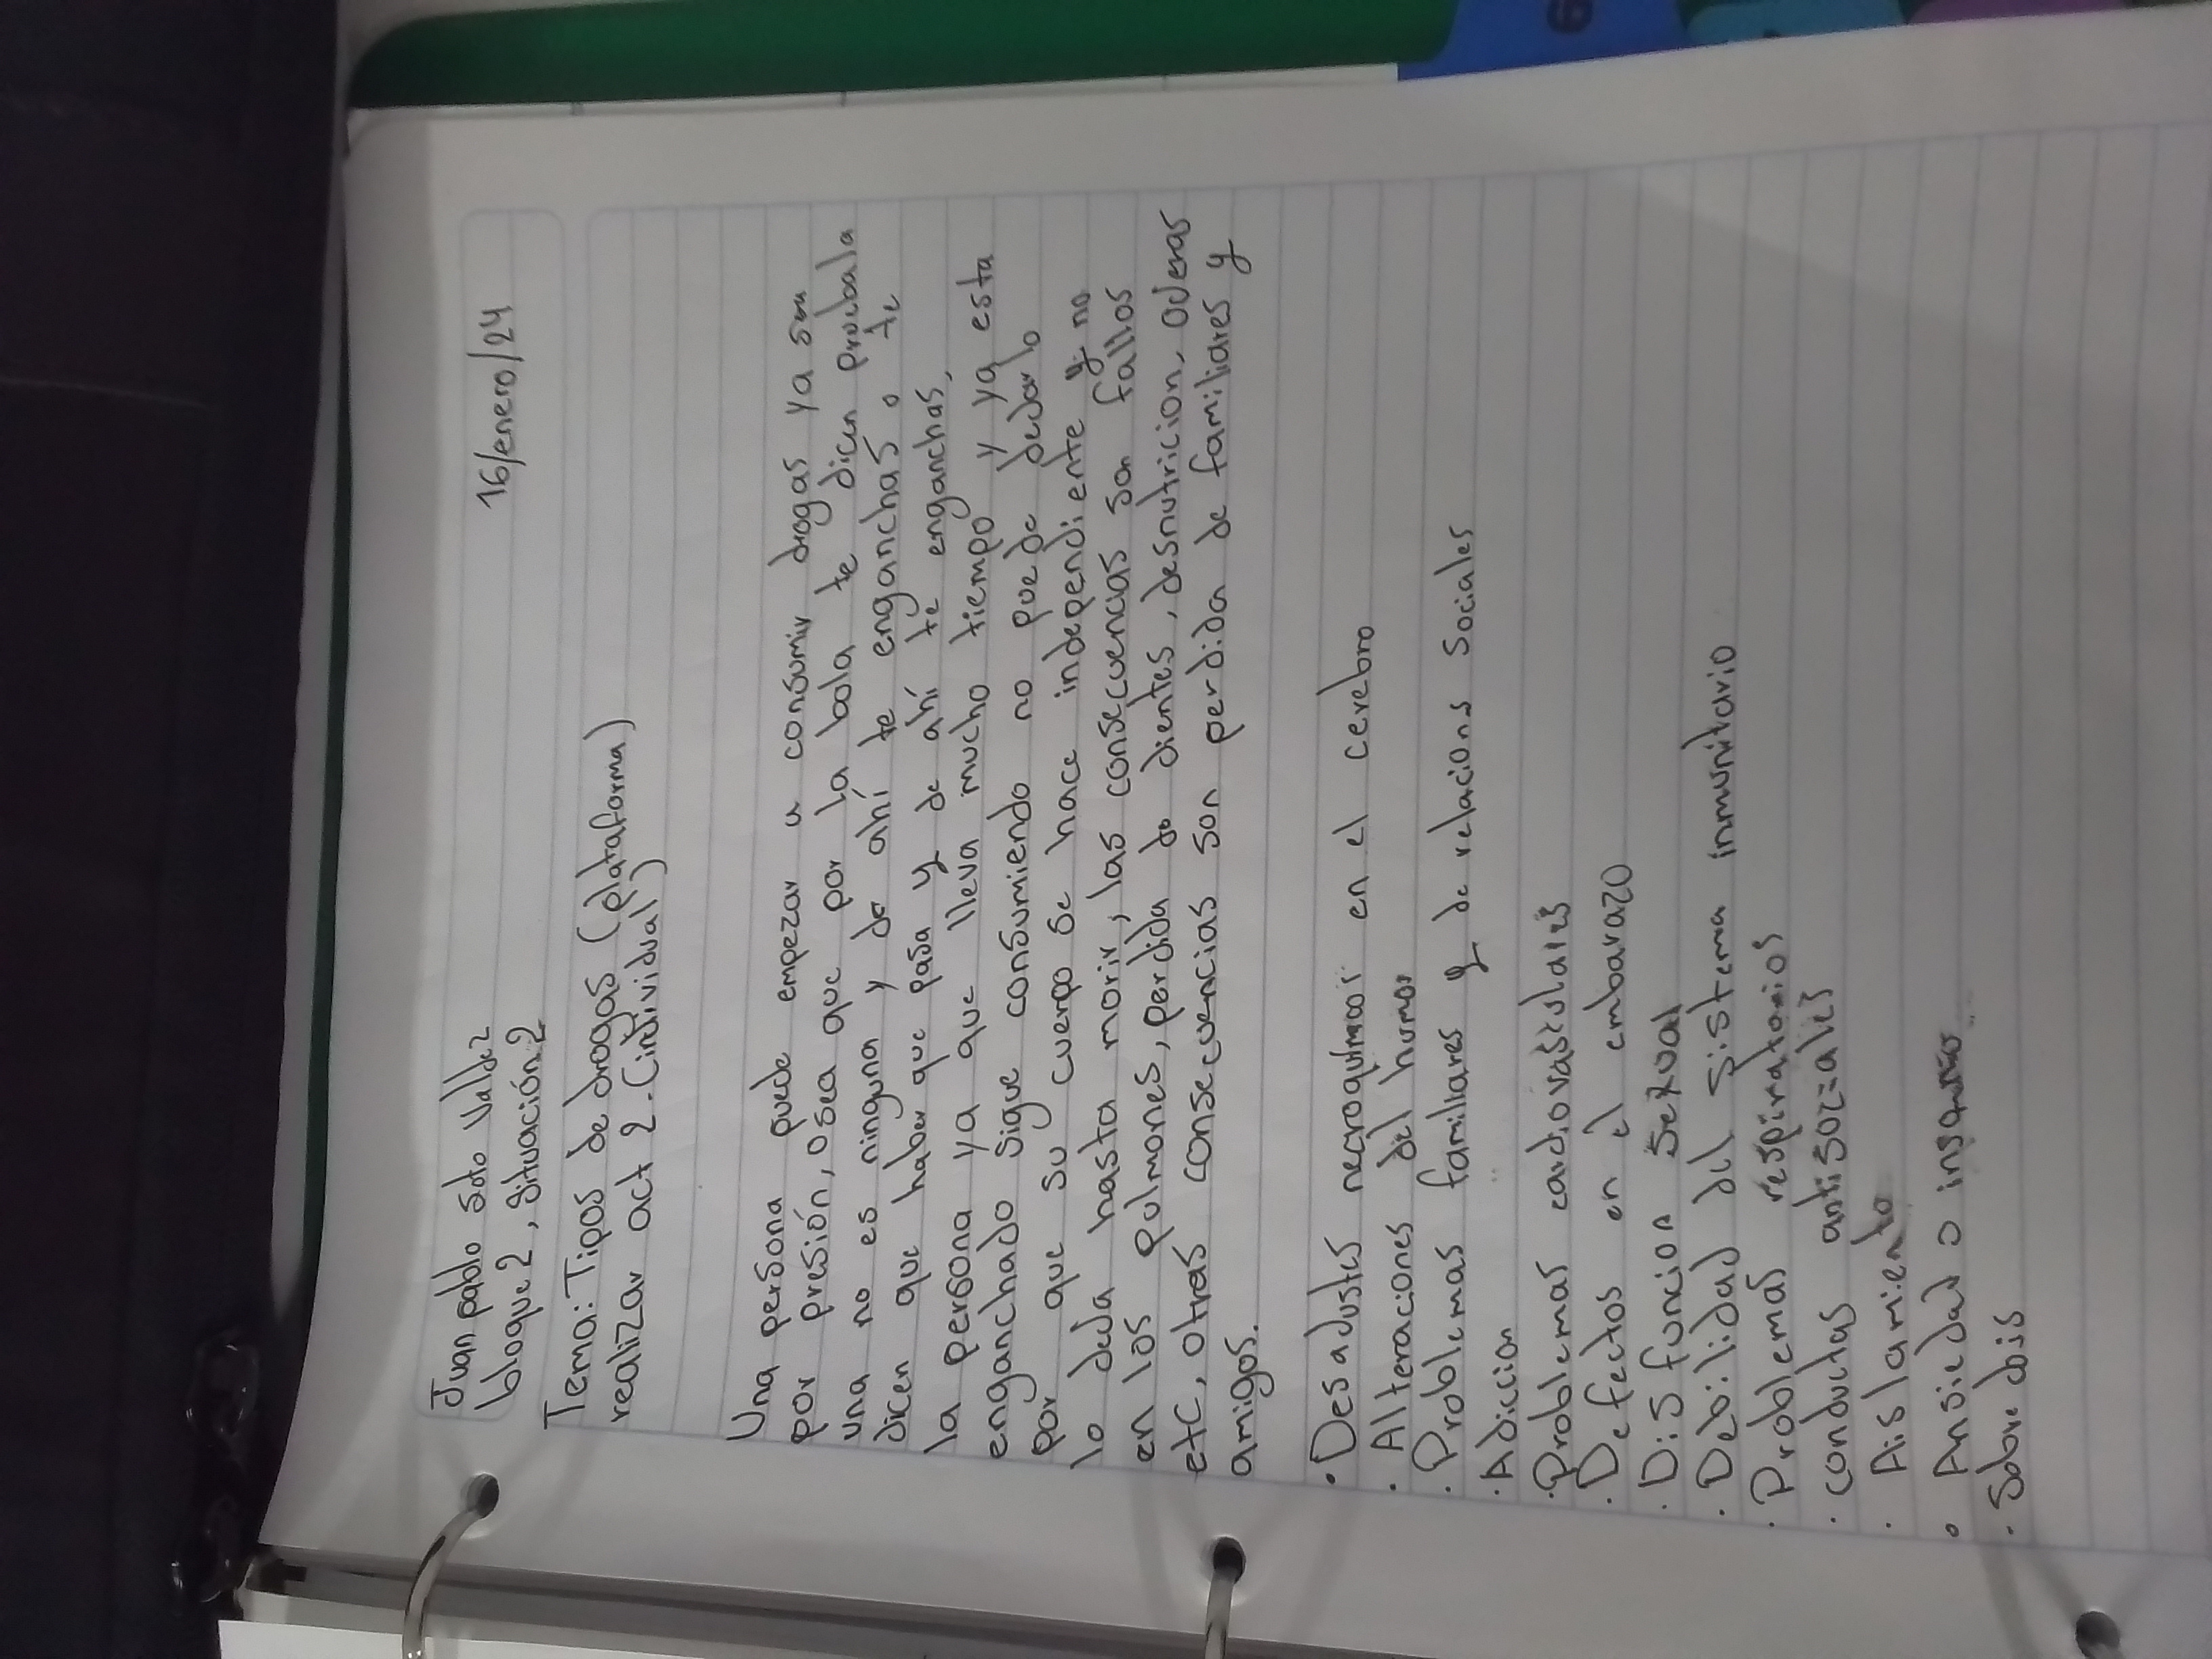 Juan pablo soto Valdez
16/enero/24
bloque 2, situación 2
Tema: Tipos de drogas (plataforma)
realizar act 2. (individual)
Una persona puede empezar a consumir drogas ya sea
por presión, osea que por la bola te dicen pruebala
una no es ninguna y de ahí te enganchas o te
dicen que haber que pasa y de ahí te enganchas,
la persona ya que lleva mucho tiempo y ya esta
enganchado sigue consumiendo no puede dedarlo
por que su cuerpo se hace independiente y no
lo deda hasta morir, las consecuencias son fallos
en los pulmones, perdida de dientes, desnutricion, oderas
etc, otras consecuencias son perdida de familiares y
amigos.
· Desadustes necroquimos en el cerebro
· Alteraciones del humor
· Problemas familiares y de relacions sociales
· Adiccion
· Problemas cardiovasculares
· Defectos en el embarazo
· Disfuncion sexual
· Debilidad del sistema inmunitario
· Problemas respiratorios
· conductas antisociales
· Aislamiento
· Ansiedad o
· Sobredois
6